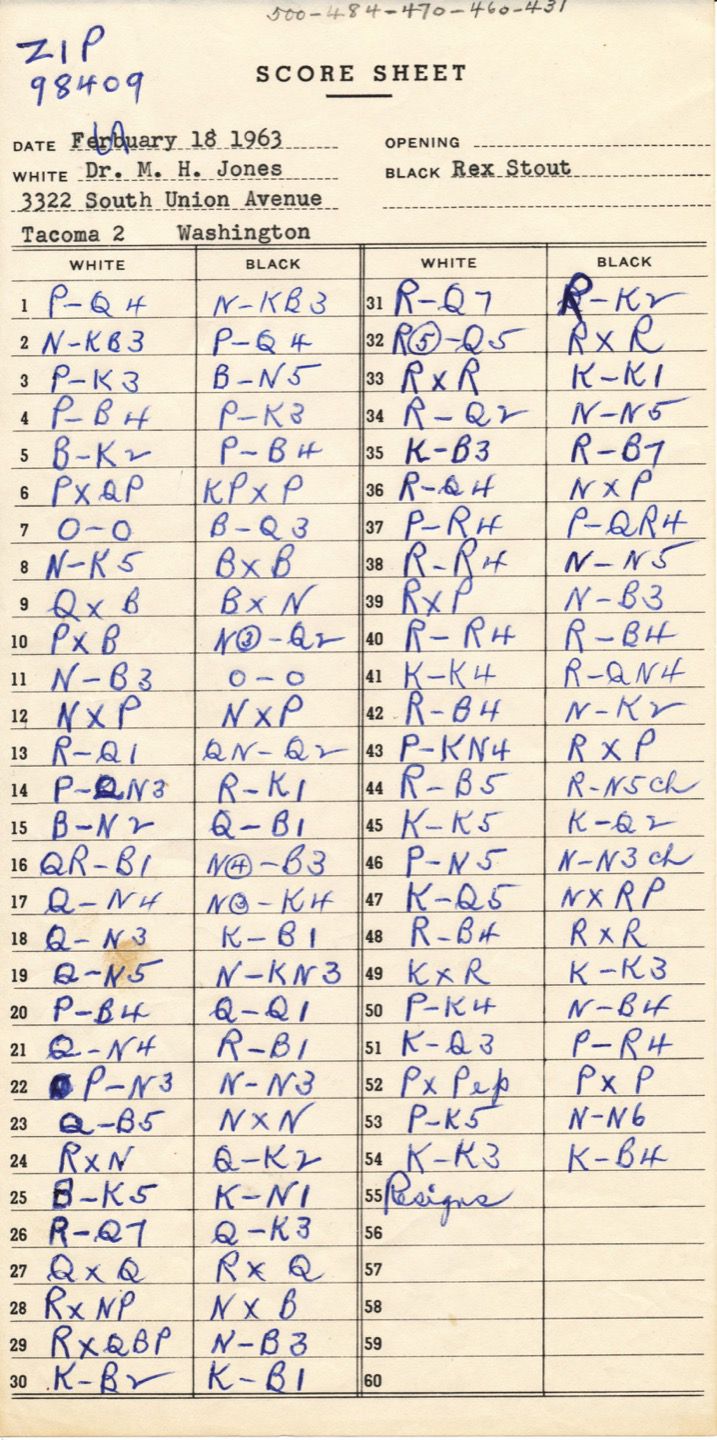 500-484-470-460-431
ZIP
98409
SCORE SHEET
DATE Ferbuary 18 1963 OPENING
WHITE Dr. M. H. Jones BLACK Rex Stout
3322 South Union Avenue
Tacoma 2 Washington
WHITE BLACK WHITE BLACK
1 P-Q4 N-KB3 31 R-Q7 R-K2
2 N-KB3 P-Q4 32 R⑤-Q5 RxR
3 P-K3 B-N5 33 RxR K-K1
4 P-B4 P-K3 34 R-Q2 N-N5
5 B-K2 P-B4 35 K-B3 R-B7
6 PxQP KPxP 36 R-Q4 NxP
7 O-O B-Q3 37 P-R4 P-QR4
8 N-K5 BxB 38 R-R4 N-N5
9 QxB BxN 39 RxP N-B3
10 PxB N③-Q2 40 R-R4 R-B4
11 N-B3 O-O 41 K-K4 R-QN4
12 NxP NxP 42 R-B4 N-K2
13 R-Q1 QN-Q2 43 P-KN4 RxP
14 P-QN3 R-K1 44 R-B5 R-N5ch
15 B-N2 Q-B1 45 K-K5 K-Q2
16 QR-B1 N④-B3 46 P-N5 N-N3ch
17 Q-N4 N③-K4 47 K-Q5 NxRP
18 Q-N3 K-B1 48 R-B4 RxR
19 Q-N5 N-KN3 49 KxR K-K3
20 P-B4 Q-Q1 50 P-K4 N-B4
21 Q-N4 R-B1 51 K-Q3 P-R4
22 P-N3 N-N3 52 PxPep PxP
23 Q-B5 NxN 53 P-K5 N-N6
24 RxN Q-K2 54 K-K3 K-B4
25 B-K5 K-N1 55 Resigns
26 R-Q7 Q-K3 56
27 QxQ RxQ 57
28 RxNP NxB 58
29 RxQBP N-B3 59
30 K-B2 K-B1 60